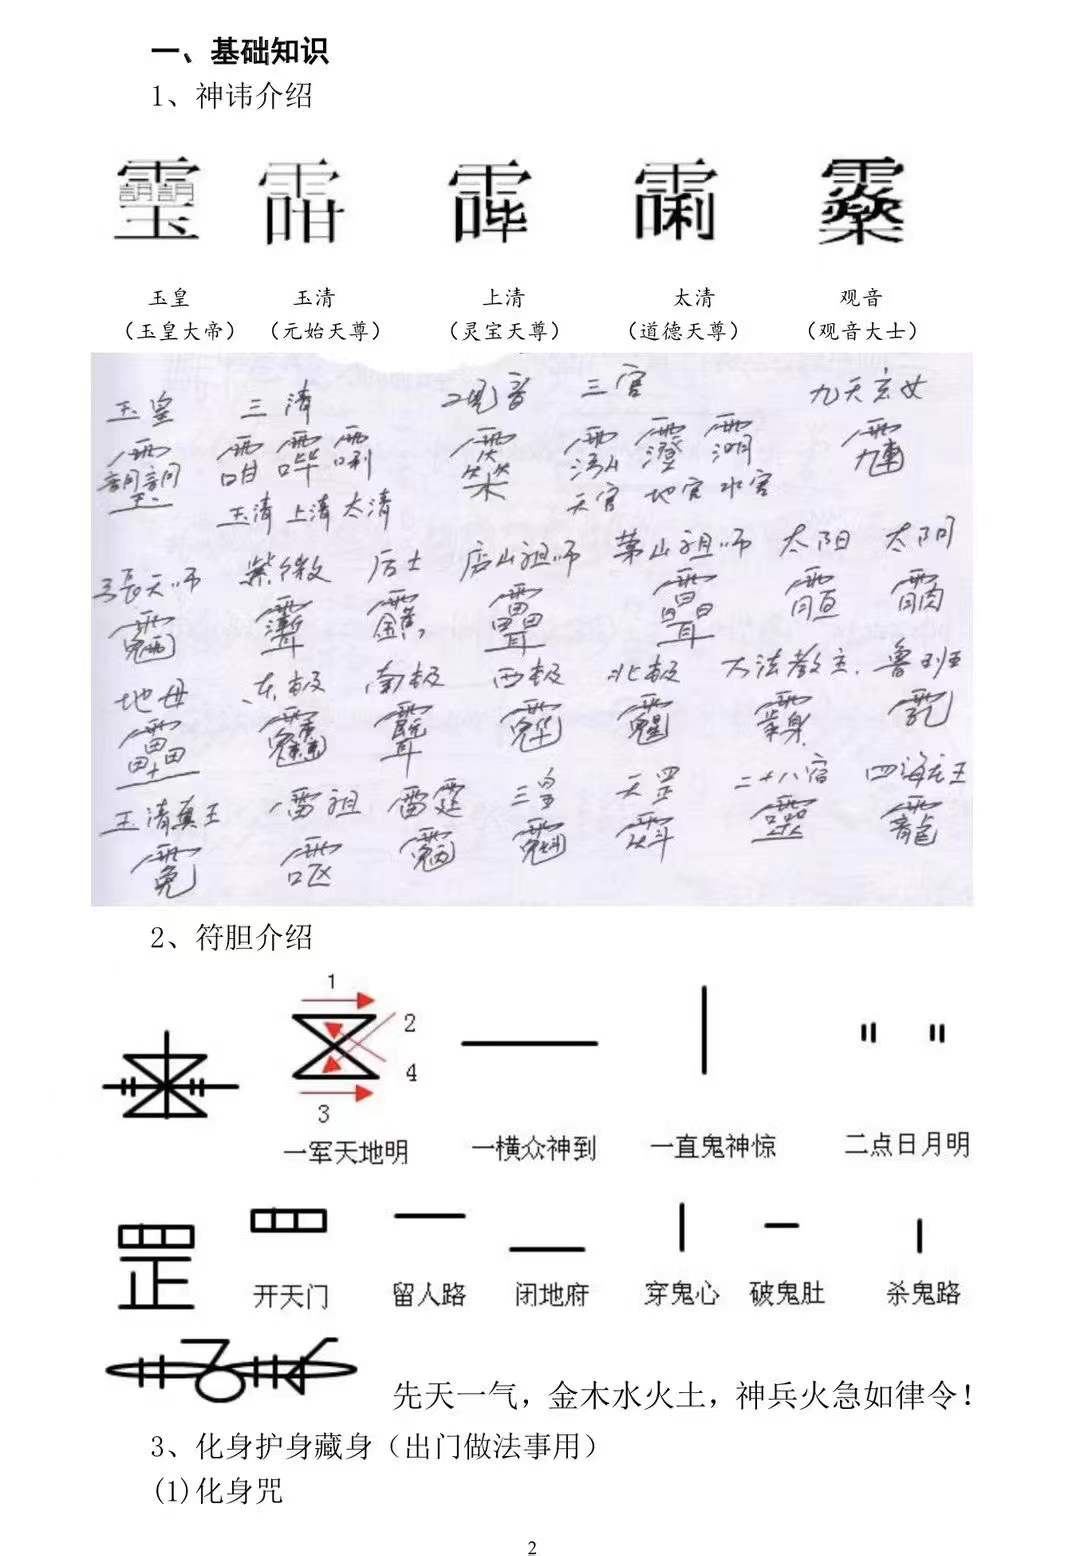 一、基础知识
1、神讳介绍
玉皇 玉清 上清 太清 观音
（玉皇大帝） （元始天尊） （灵宝天尊） （道德天尊） （观音大士）
玉皇 三清 观音 三官 九天玄女
玉清 上清 太清 天官 地官 水官
張天师 紫微 后土 庐山祖师 茅山祖师 太阳 太阴
地母 东极 南极 西极 北极 大法教主 鲁班
玉清真王 雷祖 雷霆 三皇 天罡 二十八宿 四海龙王
2、符胆介绍
1
2
4
3
一军天地明 一横众神到 一直鬼神惊 二点日月明
罡
开天门 留人路 闭地府 穿鬼心 破鬼肚 杀鬼路
先天一气，金木水火土，神兵火急如律令！
3、化身护身藏身（出门做法事用）
(1)化身咒
2